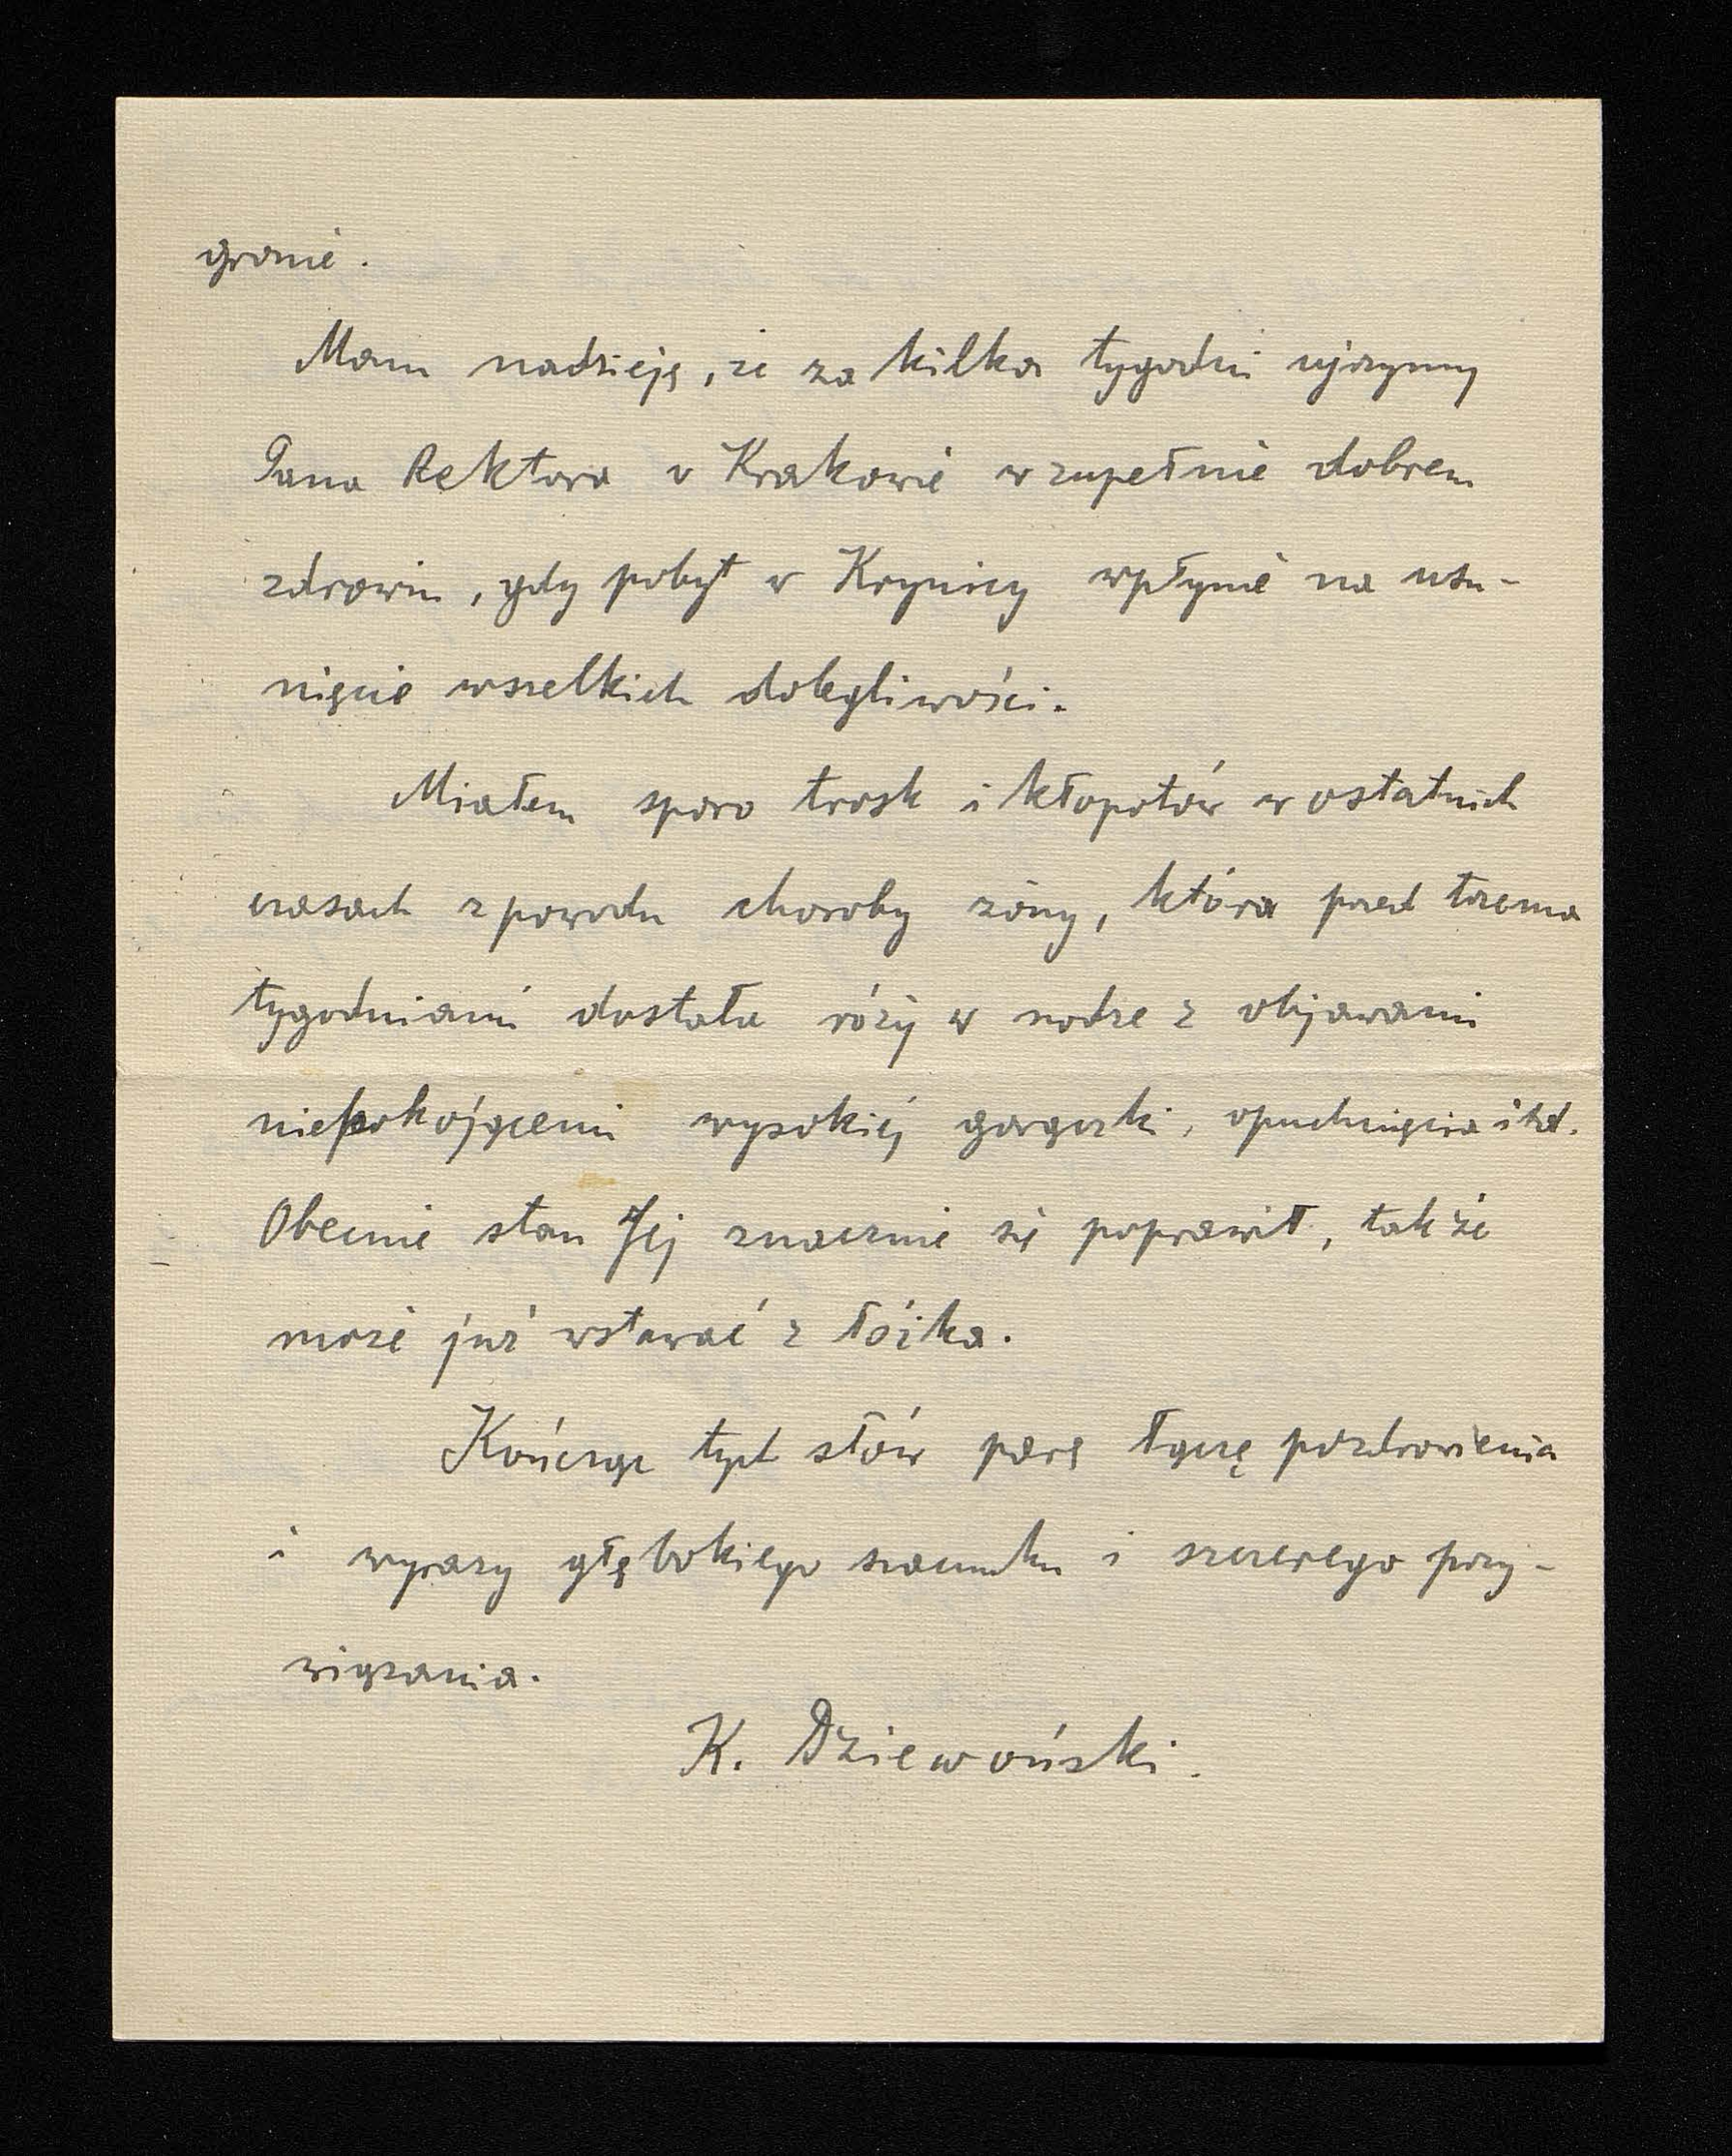 gronie.
Mam nadzieję, że za kilka tygodni ujrzymy
Pana Rektora w Krakowie w zupełnie dobrem
zdrowiu, gdy pobyt w Krynicy wpłynie na usu-
nięcie wszelkich dolegliwości.
Miałem sporo trosk i kłopotów w ostatnich
czasach z powodu choroby żony, która przed trzema
tygodniami dostała róży w nodze z objawami
niepokojącemi wysokiej gorączki, opuchnięcia itd.
Obecnie stan Jej znacznie się poprawił, tak że
może już wstawać z łóżka.
Kończąc tych słów parę łączę pozdrowienia
i wyrazy głębokiego szacunku i szczerego przy-
wiązania.
K. Dziewoński.